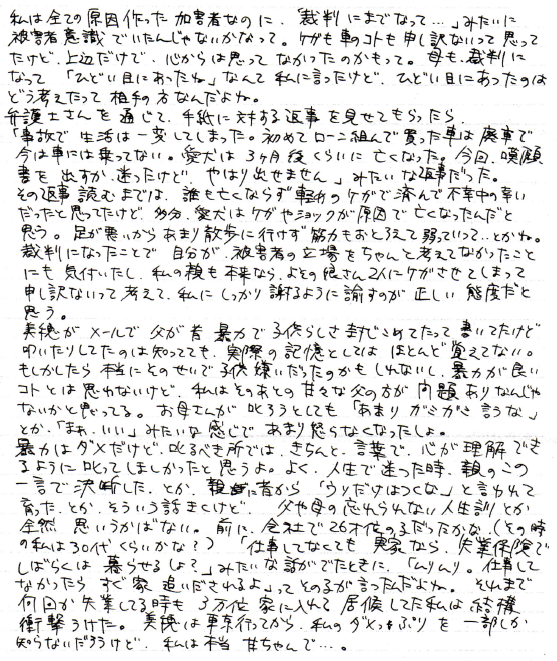 私は全ての原因作った加害者なのに、「裁判にまでなって…」みたいに
被害者意識でいたんじゃないかなって。ケガも車のコトも申し訳ないって思って
たけど、上辺だけで、心からは思ってなかったのかもって。母も、裁判に
なって「ひどい目にあったね」なんて私に言ったけど、ひどい目にあったのは
どう考えたって相手の方なんだよね。
弁護士さんを通じて、手紙に対する返事を見せてもらったら、
「事故で生活は一変してしまった。初めてローン組んで買った車は廃車で
今は車には乗ってない。愛犬は3ヶ月後くらいに亡くなった。今回、嘆願
書を出すか迷ったけど、やはり出せません」みたいな返事だった。
その返事読むまでは、誰も亡くならず軽めのケガで済んで不幸中の幸い
だったと思ってたけど、多分、愛犬はケガやショックが原因で亡くなったんだと
思う。足が悪いからあまり散歩に行けず筋力もおとろえて弱っていって…とかね。
裁判になったことで、自分が、被害者の立場をちゃんと考えてなかったこと
にも気付いたし、私の親も本来なら、よその娘さん2人にケガさせてしまって
申し訳ないって考えて、私にしっかり謝るように諭すのが正しい態度だと
思う。
美穂がメールで父が昔暴力で子供らしさ封じこめてたって書いてたけど
叩いたりしてたのは知ってても、実際の記憶としてはほとんど覚えてない。
もしかしたら本当にそのせいで子供嫌いだったのかもしれないし、暴力が良い
コトとは思わないけど、私はそのあとの甘々な父の方が問題ありなんじゃ
ないかと思ってる。お母さんが叱ろうとしても「あまりガミガミ言うな」
とか、「まぁ、いい」みたいな感じで、あまり怒らなくなったしょ。
暴力はダメだけど、叱るべき所では、きちんと、言葉で、心が理解でき
るように叱ってほしかったと思うよ。よく、人生で迷った時、親のこの
一言で決断した、とか、親に昔から「ウソだけはつくな」と言われて
育った、とか、そういう話きくけど、父や母の忘れられない人生訓とか
全然思いうかばない。前に、会社で26才位の子だったかな、(その時
の私は30代くらいかな?)「仕事してなくても実家なら、失業保険で
しばらくは暮らせるしょ?」みたいな話がでたときに、「ムリムリ。仕事して
なかったらすぐ家追いだされるよ」ってその子が言ったんだよね。それまで
何回か失業してる時も3万位家に入れて居候してた私は結構
衝撃うけた。美穂は東京行ってから、私のダメっぷりを一部しか
知らないだろうけど、私は本当甘ちゃんで…。